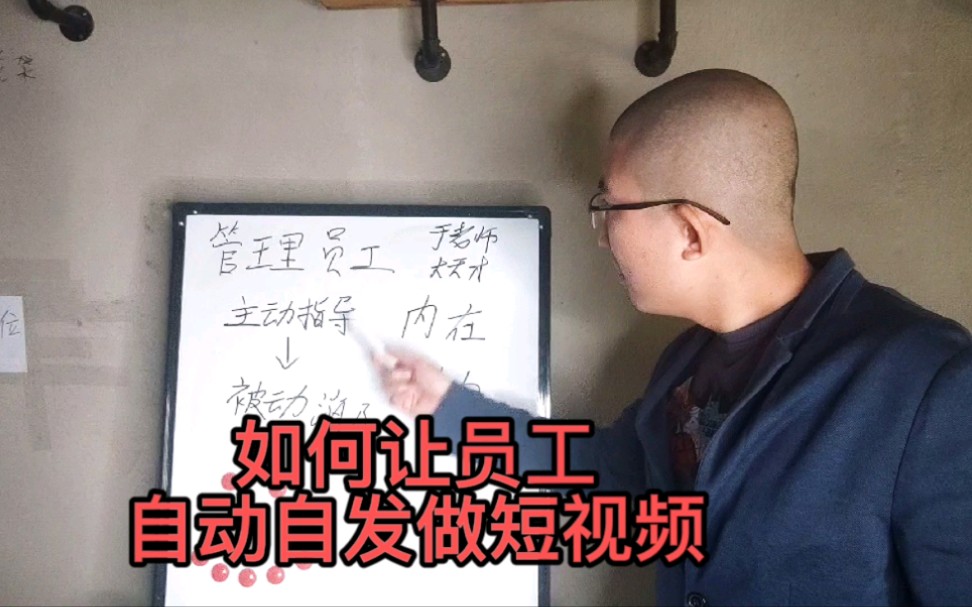 管理员工
于老师
大天才
主动指导
内在
↓
被动
位
如何让员工
自动自发做短视频